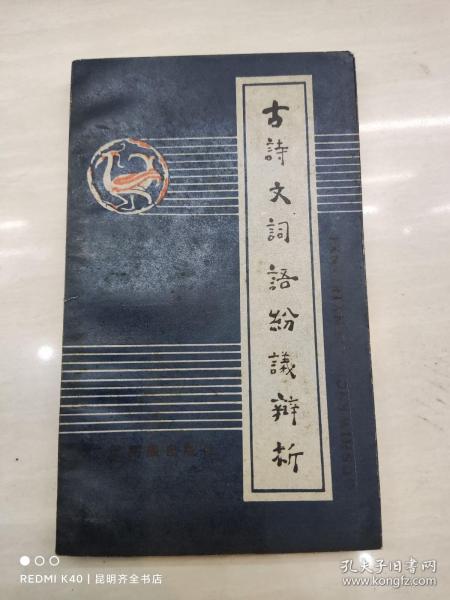 古詩文詞語紛議辯析
REDMI K40 | 昆明齐全书店
孔夫子旧书网
www.kongfz.com